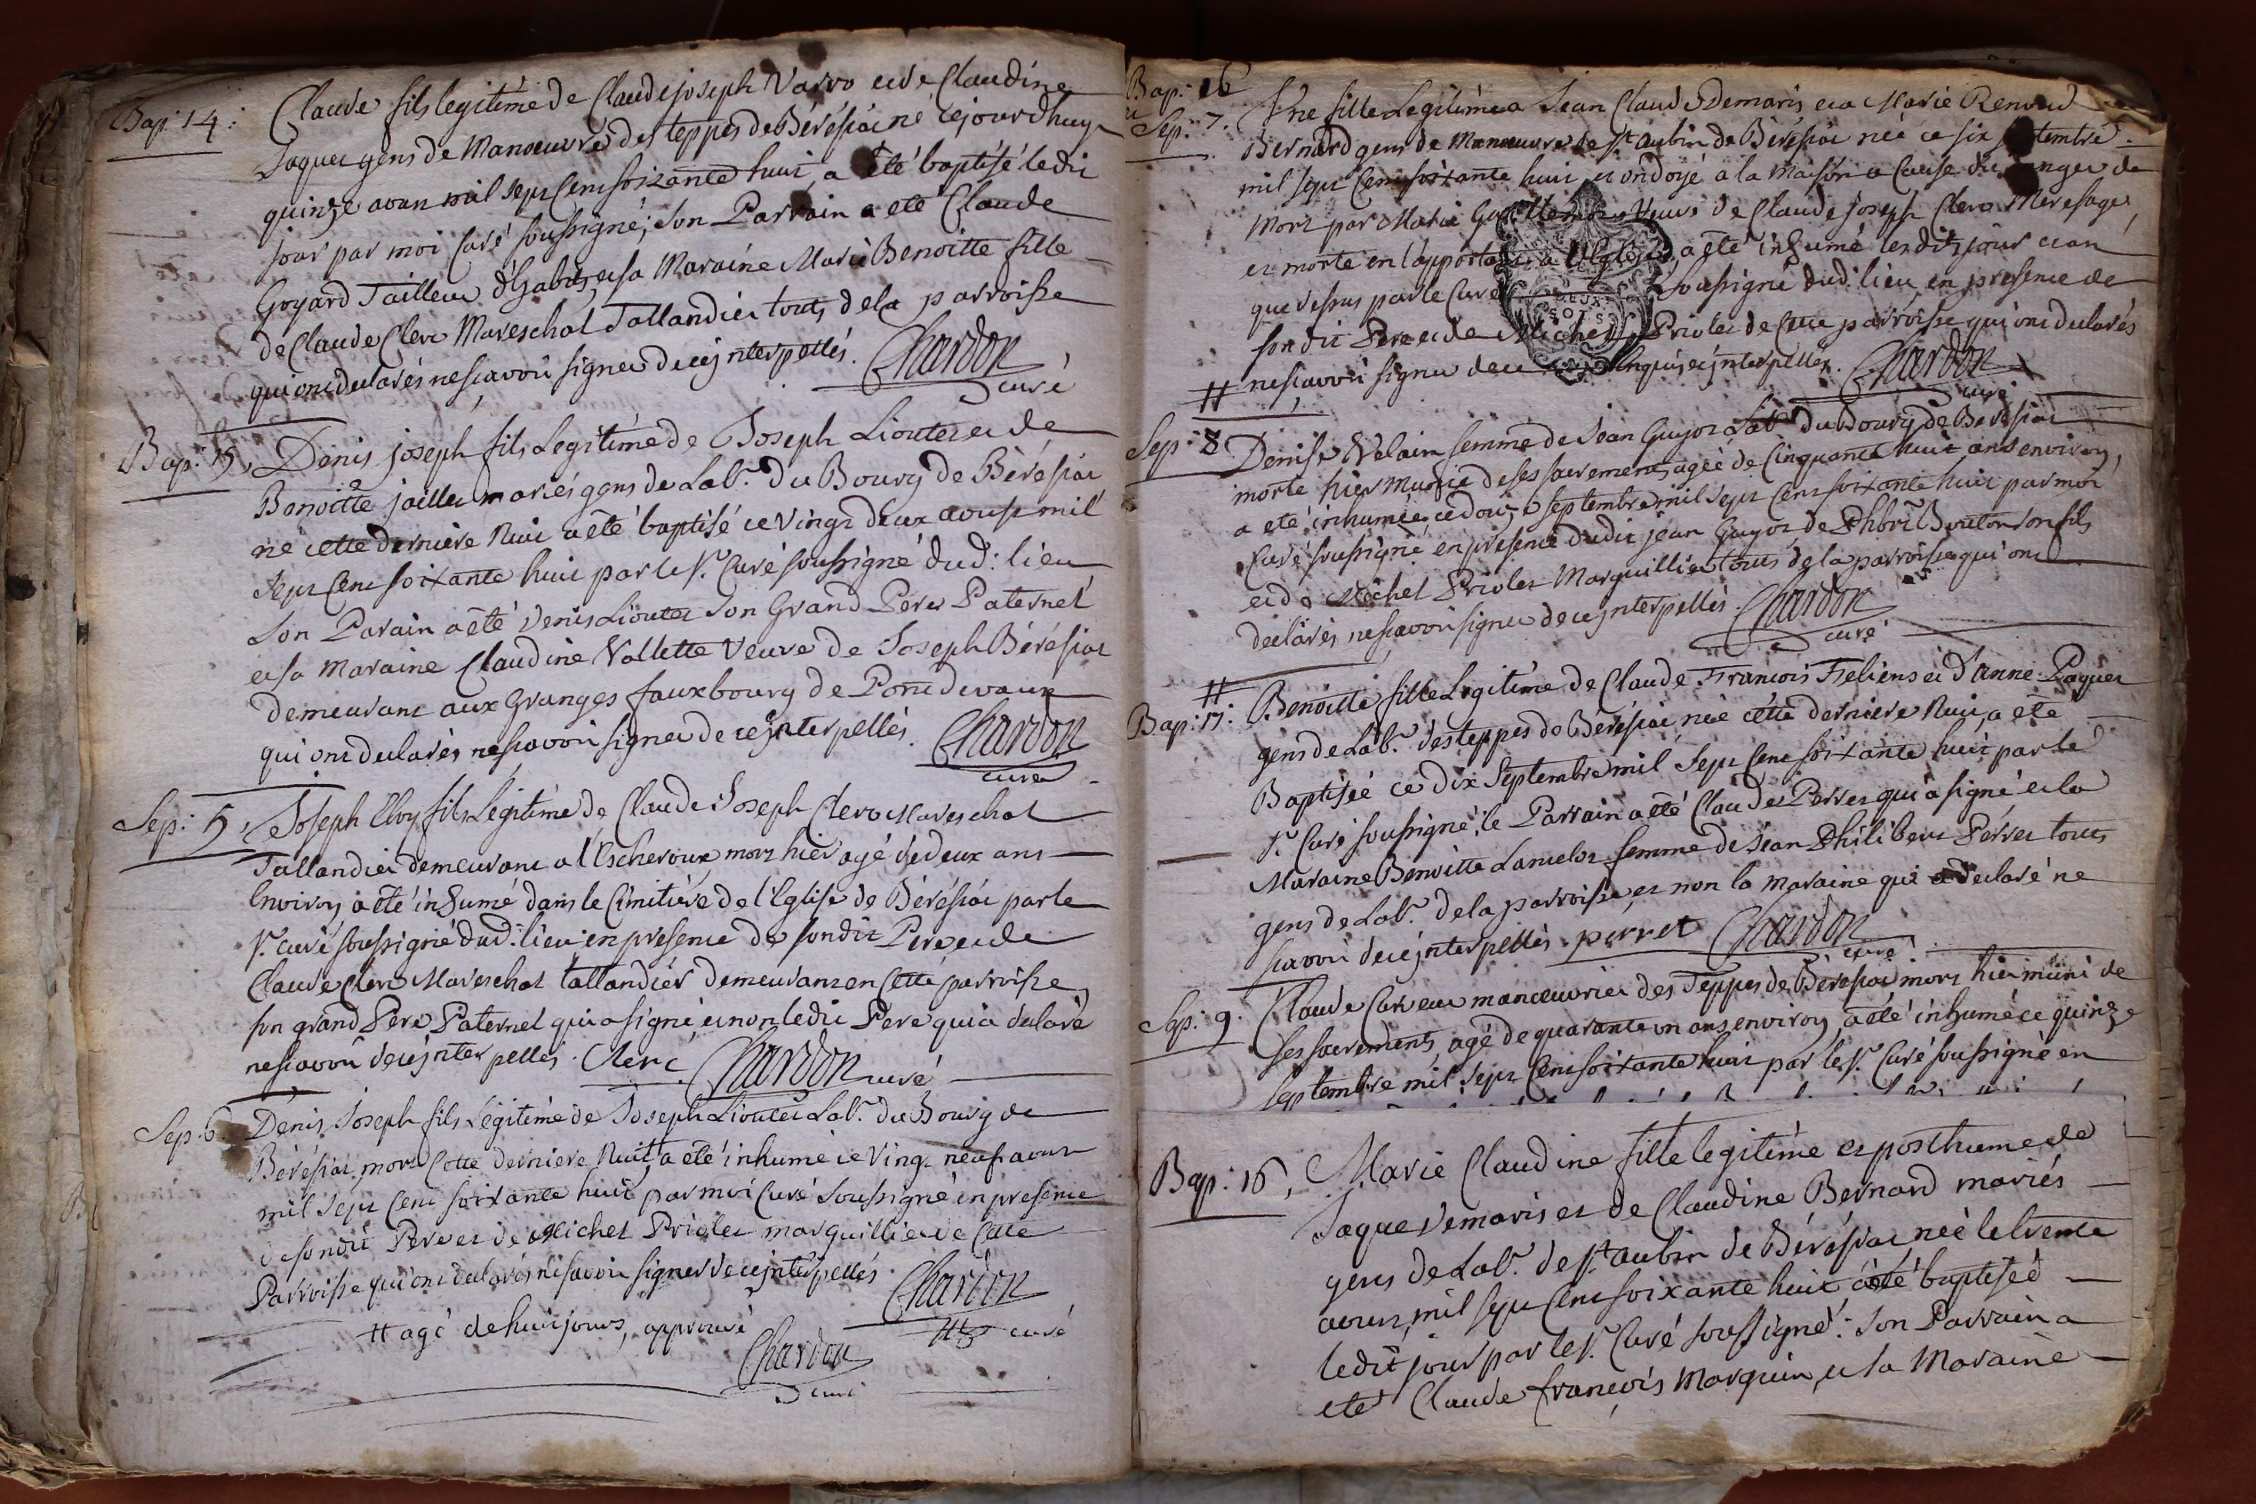 Bap: 14:
Claude fils legitime de Claude joseph Varvo et de Claudine
Jaquet gens de Manoeuvre des teppes de Béréziat né cejourdhuy
quinze aoust mil sept Cent soixante huit, a été baptisé ledit
jour par moi Curé soussigné; son Parrain a eté Claude
Goyard Tailleur d'habits, et sa Maraine Marie Benoitte fille
de Claude Clerc Mareschal Taillandier touts de la parroisse
qui ont declarés ne sçavoir signer de ce jnterpellés. Chardon
curé
Bap: 15,
Denis joseph fils Legitime de Joseph Lioutet et de
Benoitte jaillet mariés gens de Labr. du Bourg de Béréziat
né cette derniere Nuit a été baptisé ce vingt deux aoust mil
sept Cent soixante huit par le Sr. Curé soussigné dud: lieu
Son Parain a été denis Lioutet son Grand Pere Paternel
et sa maraine Claudine Vallette veuve de Joseph Béréziat
demeurant aux Granges fauxbourg de Pontdevaux
qui ont declarés ne sçavoir signer de ce jnterpellés. Chardon
curé
Sep: 5,
Joseph Eloy fils Légitime de Claude Joseph Clerc Mareschal
Tallandier demeurant a l'Escheroux mort hier agé de deux ans
Environ a été inhumé dans le Cimitière de l'Eglise de Béréziat par le
Sr. curé soussigné dud: lieu en presence de son dit Pere et de
Claude Clerc Mareschal tallandier demeurant en Cette parroisse,
son grand Pere Paternel qui a signé et non ledit Pere qui a declaré
ne sçavoir de ce jnterpellés. Clerc Chardon curé
Sep: 6.
Denis Joseph fils Légitime de Joseph Lioutet Labr. du Bourg de
Béréziat mort Cette derniere Nuit # a été inhumé ce vingt neuf aoust
mil sept Cent soixante huit par moi Curé soussigné en presence
de son dit Pere et de Michel Priolet marguillier de Cette
Parroisse qui ont declarés ne sçavoir signer de ce jnterpellés.
Chardon
curé
# agé de huit jours, approuvé
Chardon
curé
Bap: 16
et
Sep: 7.
Une fille Legitime a Jean Claude Demaris et a Marie Renaud
Bernard gens de Manoeuvre de St. aubin de Béréziat née ce six septembre
mil sept Cent soixante huit et ondoyé a la Maison a Cause du danger de
mort par Marie veuve de Claude joseph Clerc Mere sage,
et morte en l'apportant a l'Eglise, a été inhumé les dits jour et an
que dessus par le Curé soussigné dud: lieu en presence de
son dit Pere et de Michel Priolet de Cette parroisse qui ont declarés
ne sçavoir signer de ce enquis et jnterpellés. Chardon
curé
DEUX
SOLS
#
Sep: 8
Denise Velain femme de Jean Guyot Labr. du Bourg de Béréziat
morte hier munie de ses sacrements, agée de Cinquante huit ans environ,
a eté inhumée, ce douze septembre mil sept Cent soixante huit par moi
Curé soussigné en presence dudit jean Guyot, de Phbert Bouton son fils
et de Michel Priolet Marguillier touts de la parroisse qui ont
declarés ne sçavoir signer de ce jnterpellés. Chardon
curé
#
Bap: 17:
Benoitte fille Legitime de Claude Francois Feliens et d'anne Paquet
gens de Labr. des teppes de Béréziat née cette derniere Nuit, a été
Baptisée ce dix septembre mil sept Cent soixante huit par le
Sr. Curé soussigné, le Parrain a été Claude Perret qui a signé et la
Maraine Benoitte Lancelot femme de Jean Philibert Perret touts
gens de Labr. de la parroisse, et non la maraine qui a declaré ne
sçavoir de ce jnterpellés. perret Chardon
curé
Sep: 9.
Claude Carveur manoeuvrier des Teppes de Béréziat mort hier muni de
ses sacrements, agé de quarante un ans environ a été inhumé ce quinze
septembre mil sept Cent soixante huit par le Sr. Curé soussigné en
Bap: 16,
Marie Claudine fille legitime et posthume de
Jaque demaris et de Claudine Bernard mariés
gens de Labr. de St. aubin de Béréziat née le trente
aoust, mil sept Cent soixante huit a été baptisée
ledit jour par le Sr. Curé soussigné: son Parrain a
eté Claude françois Marguin, et sa Maraine